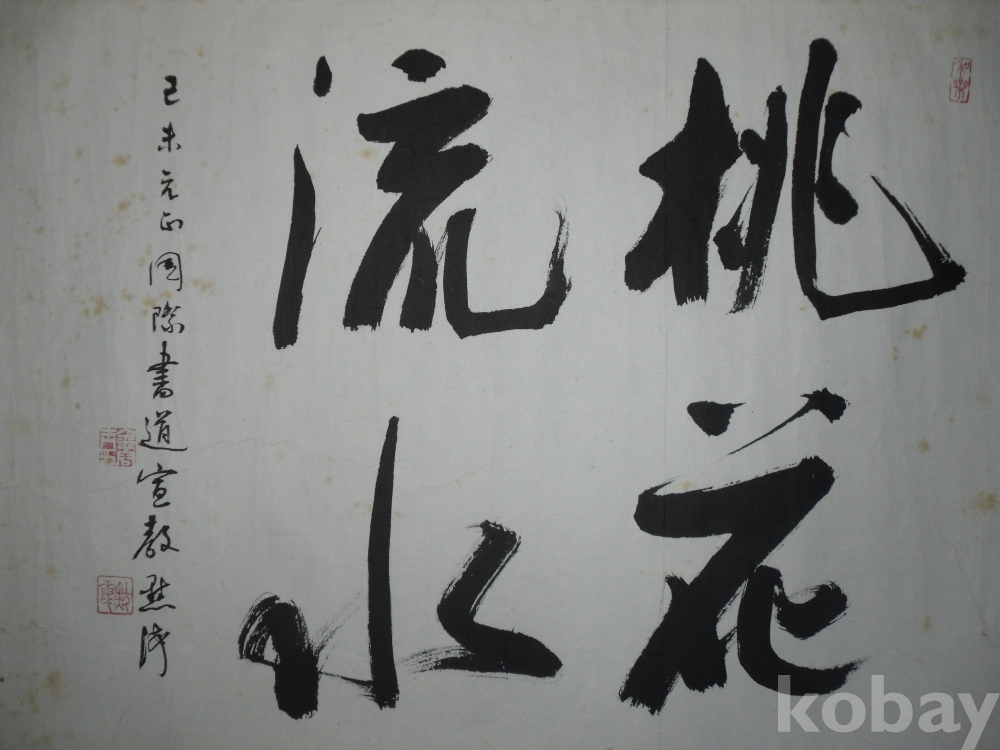 桃花
流水
己未元正國際書道宣教
kobay